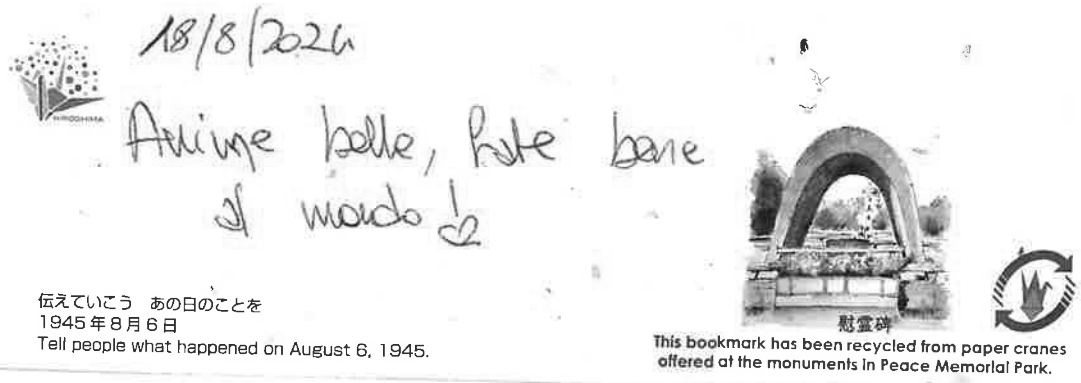 18/8/2024
HIROSHIMA
Anime belle, fate bene
al mondo!
伝えていこう あの日のことを
1945年8月6日
Tell people what happened on August 6, 1945.
慰霊碑
This bookmark has been recycled from paper cranes
offered at the monuments in Peace Memorial Park.